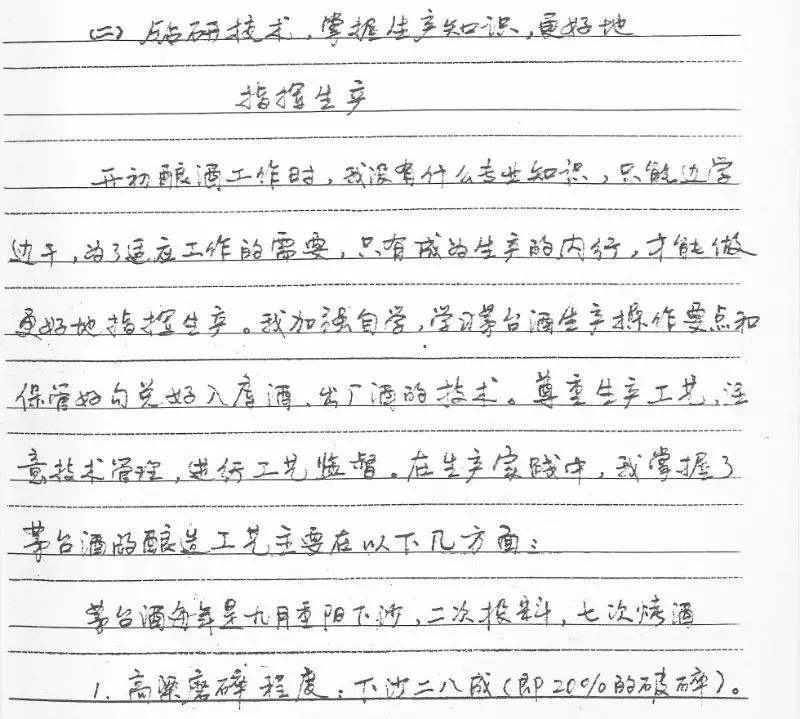 (二)钻研技术,掌握生产知识,更好地
指挥生产
开初酿酒工作时,我没有什么专业知识,只能边学
边干,为了适应工作的需要,只有成为生产的内行,才能做
更好地指挥生产。我加强自学,学习茅台酒生产操作要点和
保管好勾兑好入库酒、出厂酒的技术。尊重生产工艺,注
意技术管理,进行工艺监督。在生产实践中,我掌握了
茅台酒的酿造工艺主要在以下几方面:
茅台酒每年是九月重阳下沙,二次投料,七次烤酒
1.高粱磨碎程度:下沙二八成(即20%的破碎)。